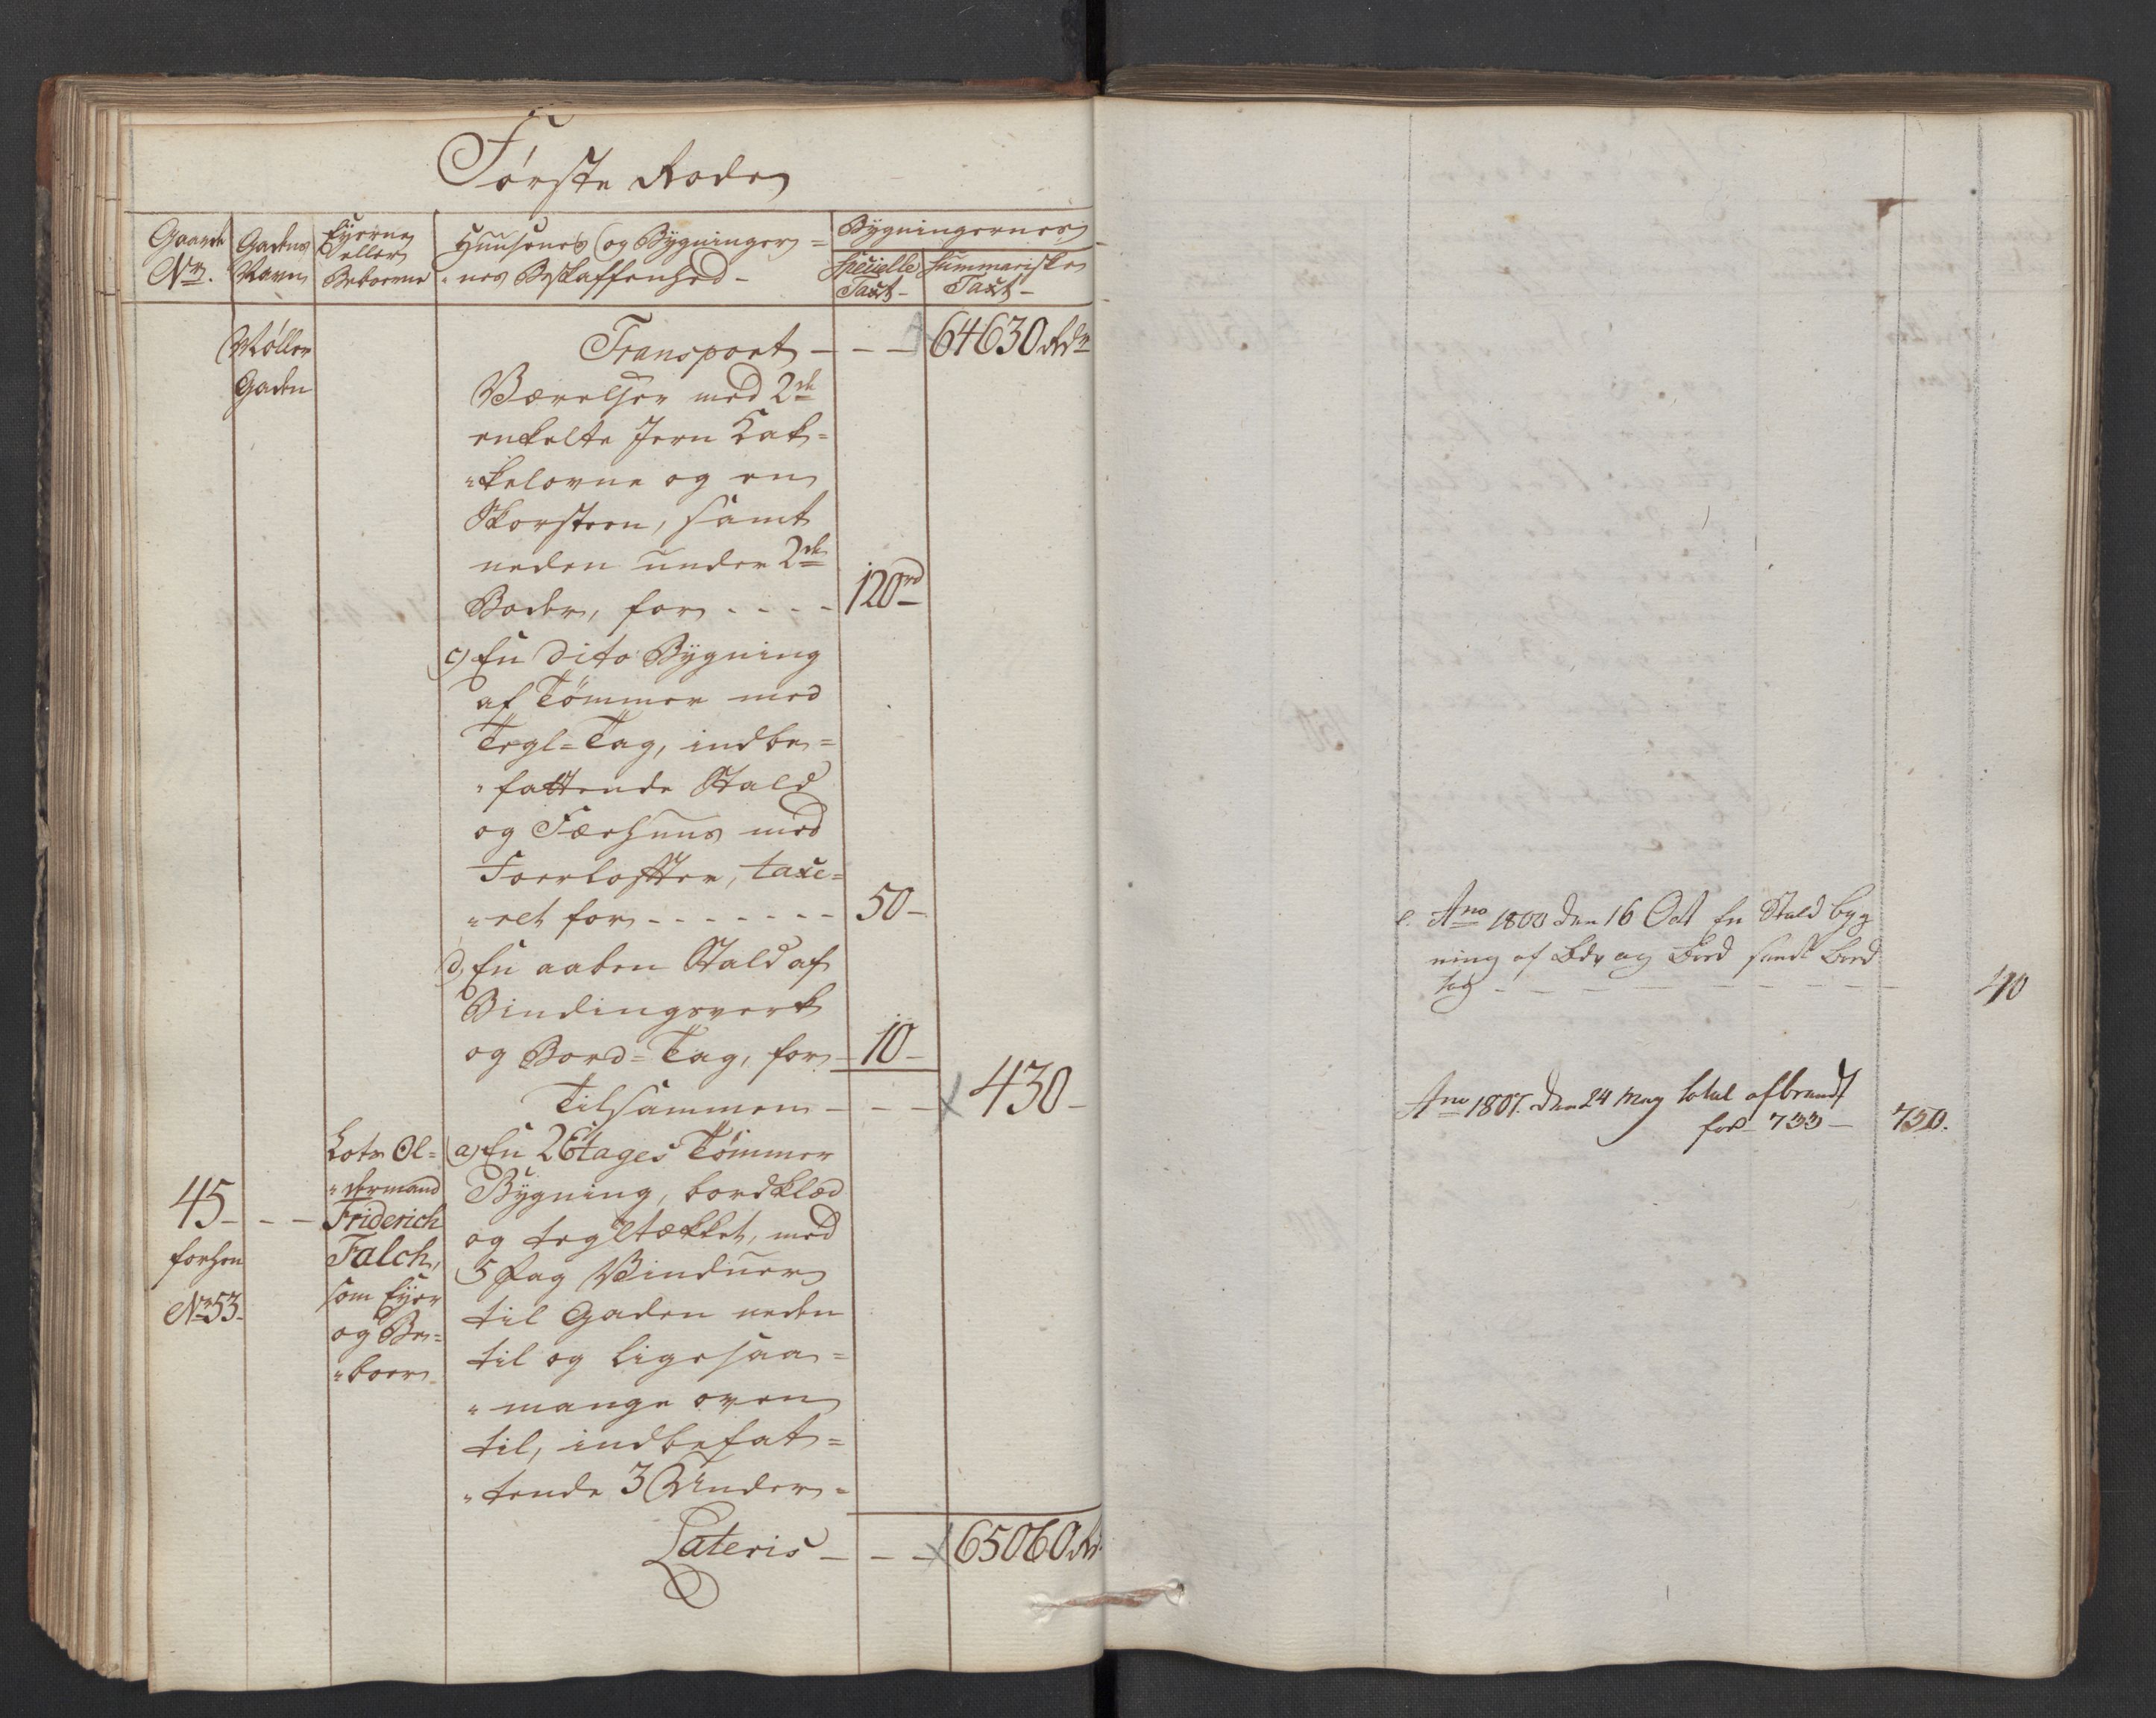 Første Rode
Gaards
Nr.
Gadens
Navn
Eyerne
eller
Beboerne
Huusenes og Bygninger=
"nes Beskaffenhed -
Bygningernes
Specielle
Taxt -
Summariske
Taxt -
Møller
Gaden
Transport - - - 64630 Rdr
Værelser med 2de
enkelte Jern Kak=
"kelovne og en
Skorsteen, samt
neden under 2de
Boder, for - - - - 120rd
c) En dito Bygning
af Tømmer med
Tegl=Tag, indbe=
"fattende Stald
og Færhuus med
Foerlofter, taxe=
"ret for - - - - - - - 50 -
d, En aaben Stald af
Bindingsverk
og Bord=Tag, for - 10 -
Tilsammen - - - 430 -
45 - - -
forhen
Nr 53.
Lots Ol=
"dermand
Friderich
Falch,
som Eyer
og Be=
"boer
a) En 2 Etages Tømmer
Bygning, bordklæd
og tegltækket, med
5 Fag Vinduer
til Gaden neden
til og ligesaa=
"mange oven
til, indbefat=
"tende 3 Under=
Lateris - - - 65060 Rd.
e. Ano 1800 den 16 Oct En Stald byg
ning af og Bord samt Bord
tag - - - - - - - - 40
Ano 1807. den 24 May total afbrændt
for 733 - 750.